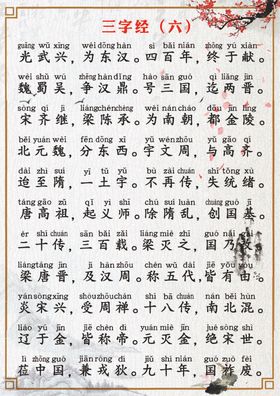 三字经（六）
guāng wǔ xīng wéi dōng hàn sì bǎi nián zhōng yú xiàn
光武兴，为东汉。四百年，终于献。
wèi shǔ wú zhēng hàn dǐng hào sān guó qì liǎng jìn
魏蜀吴，争汉鼎。号三国，迄两晋。
sòng qí jì liáng chén chéng wéi nán cháo dōu jīn líng
宋齐继，梁陈承。为南朝，都金陵。
běi yuán wèi fēn dōng xī yǔ wén zhōu yǔ gāo qí
北元魏，分东西。宇文周，与高齐。
dài zhì suí yī tǔ yǔ bù zài chuán shī tǒng xù
迨至隋，一土宇。不再传，失统绪。
táng gāo zǔ qǐ yì shī chú suí luàn chuàng guó jī
唐高祖，起义师。除隋乱，创国基。
èr shí chuán sān bǎi zǎi liáng miè zhī guó nǎi gǎi
二十传，三百载。梁灭之，国乃改。
liáng táng jìn jí hàn zhōu chēng wǔ dài jiē yǒu yóu
梁唐晋，及汉周。称五代，皆有由。
yán sòng xīng shòu zhōu shàn shí bā chuán nán běi hùn
炎宋兴，受周禅。十八传，南北混。
liáo yǔ jīn jiē chēng dì yuán miè jīn jué sòng shì
辽于金，皆称帝。元灭金，绝宋世。
lì zhōng guó jiān róng dí jiǔ shí nián guó zuò fèi
莅中国，兼戎狄。九十年，国祚废。